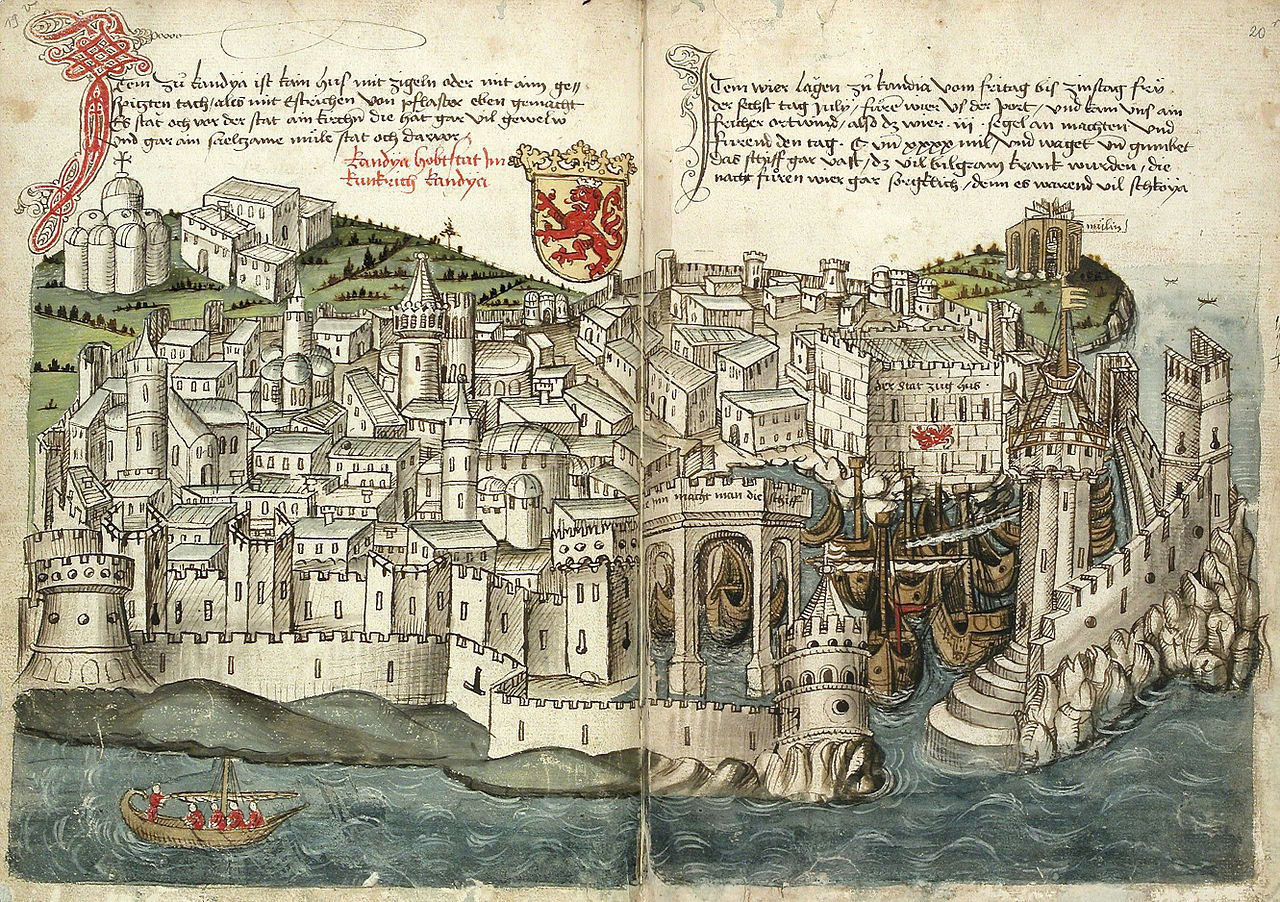 19 v
Item zů kandya ist kain hus mit zigeln oder mit aim ge//
spitzten tach / als mit Estrichen von pflaster eben gemacht
Es stat och vor der stat ain kirchn die hat gar vil gewelw
Vnd gar ain sceltzame müle stat och darvor /
kandya hobtstat Im
kunkrich kandya
20
Item wier lagen zů kandia vom fritag bis zinstag frü
der sechst tag July / füre wier vs der port / vnd kam vns ain
fricher ortwind / also dz wier · iii · segel an machten vnd
fürend den tag · C vn xxxx mil / vnd waget vn gumbet
das schiff gar vast / dz vil bilgram krank wurden / die
nacht füren wier gar sorgklich / denn es warend vil schkoya
mülin
der stat zug hus ·
inn macht man die schiff